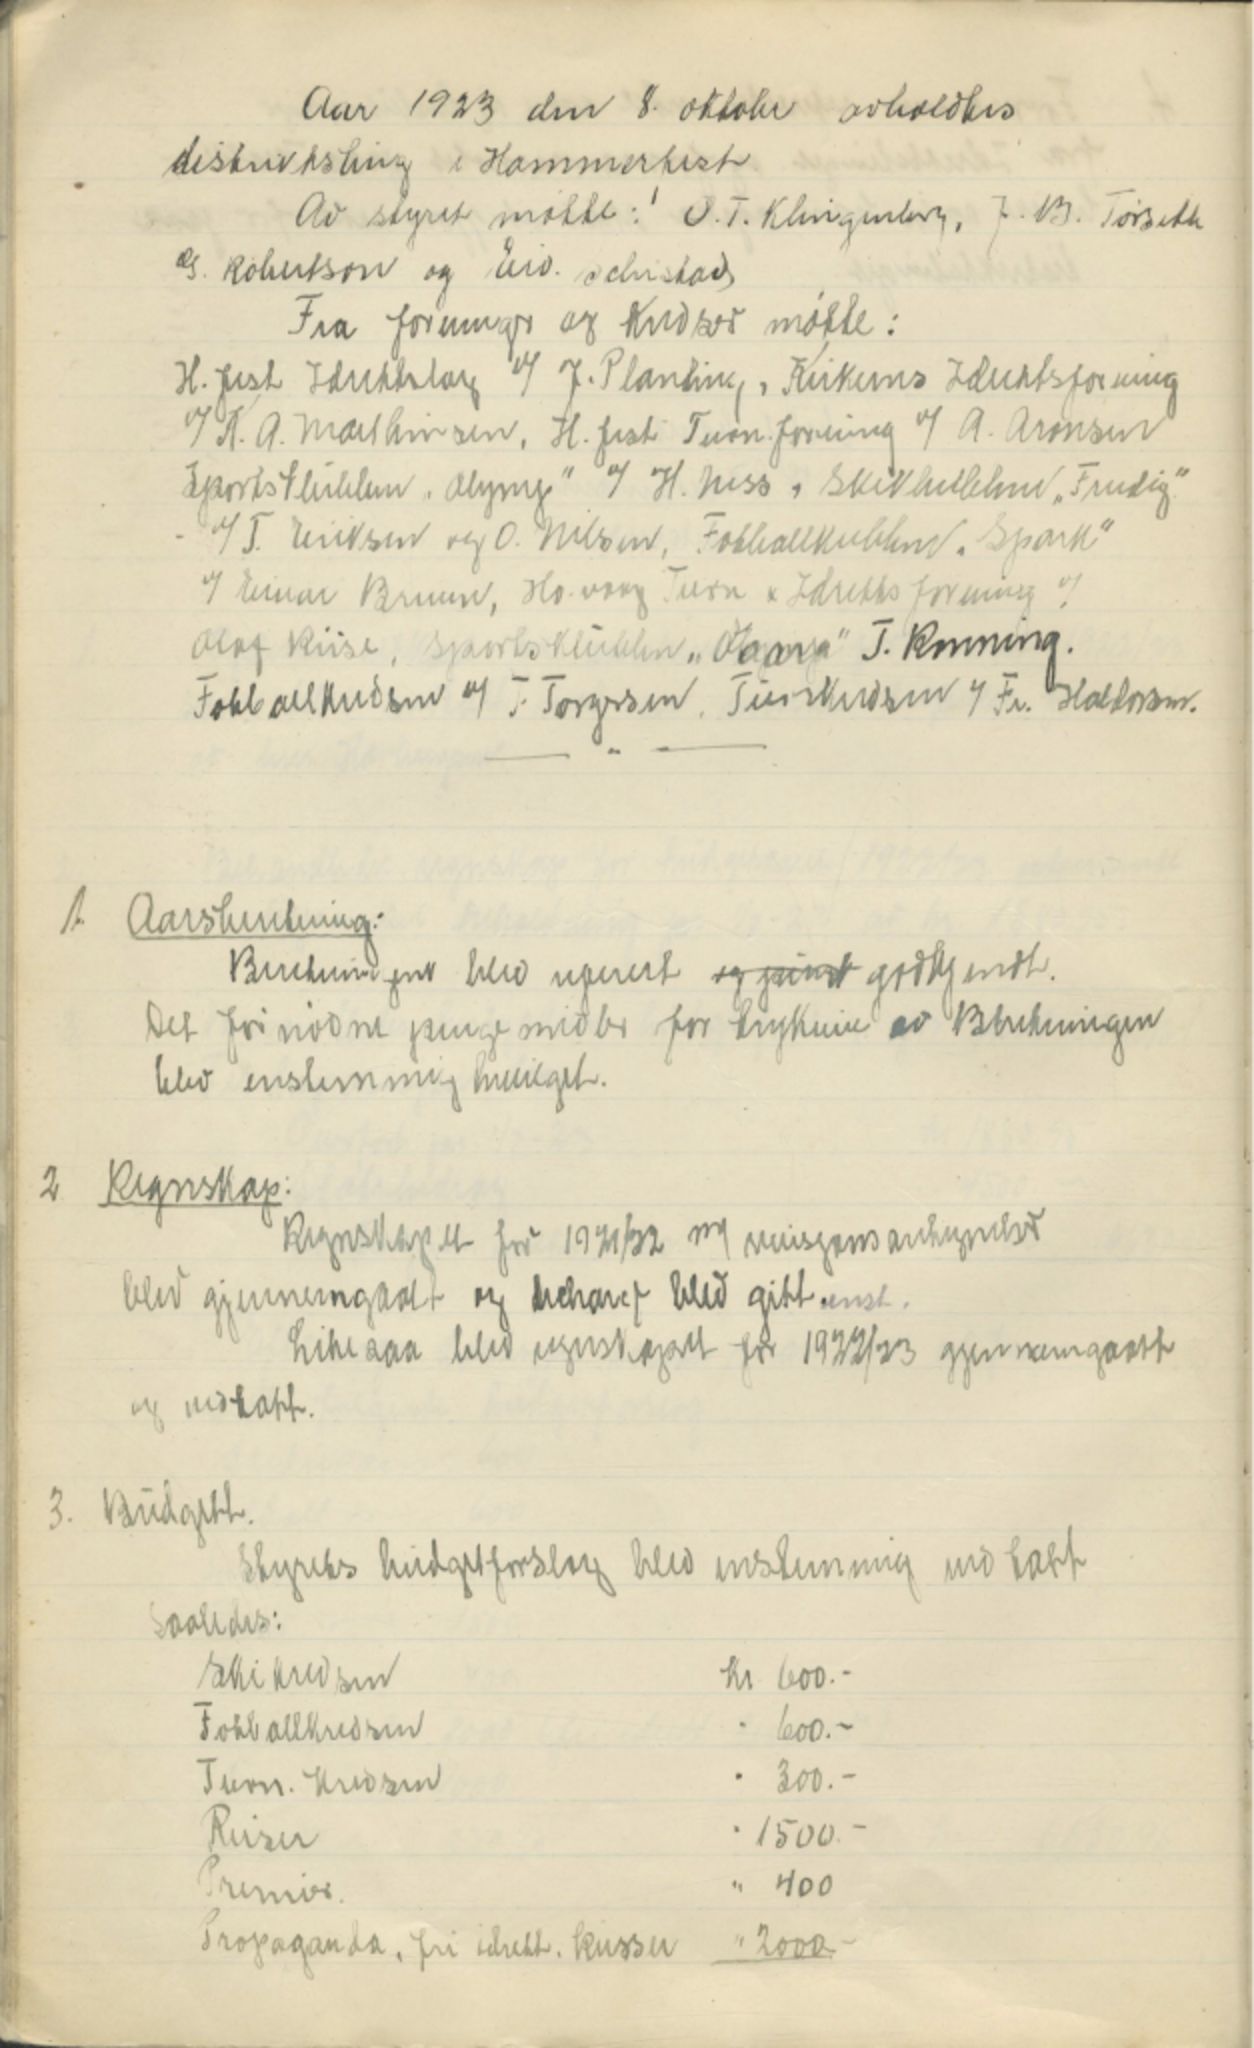 Aar 1923 den 8. oktober avholdtes
distriktsting i Hammerfest
Av styret møtte: O. T. Klingenberg, J. B. Torseth
G. Robertson og Eiv. Schistad
Fra foreninger og Kredser møtte:
H. fest Idrettslag v/ J. Planting, Kirkenes Idrettsforening
v/ K. A. Mathinsen, H. fest Turn.forening v/ A. Aronsen
Sportsklubben " v/ H. Ness, Skiklubben „Freidig"
v/ T. Eriksen og O. Nilsen, Fotballklubben „Spark"
v/ Einar Bruun, Ho.vaag Turn & Idrettsforening v/
Olaf Kiise, Sportsklubben T. Rønning.
Fotballkredsen v/ T. Torgersen, Turnkredsen v/ Fr. Haldorsen.
— " —
1. Aarsberetning:
Beretningen blev referert godkjendt.
Det fornødne penge midler for trykning av Beretningen
blev enstemmig bevilget.
2 Regnskap:
Regnskapet for 1921/22 m/ revisjonsantegnelser
blev gjennemgaat og decharge blev gitt enst.
Likesaa blev regnskapet for 1922/23 gjennemgaatt
og vedtatt.
3. Budgett.
Styrets budgetforslag blev enstemmig vedtatt
saaledes:
Skikredsen kr 600.-
Fotballkredsen " 600.-
Turn. kredsen " 300.-
Reiser " 1500.-
Premier. " 400
Propaganda, fri idrett. kurser " 2000-